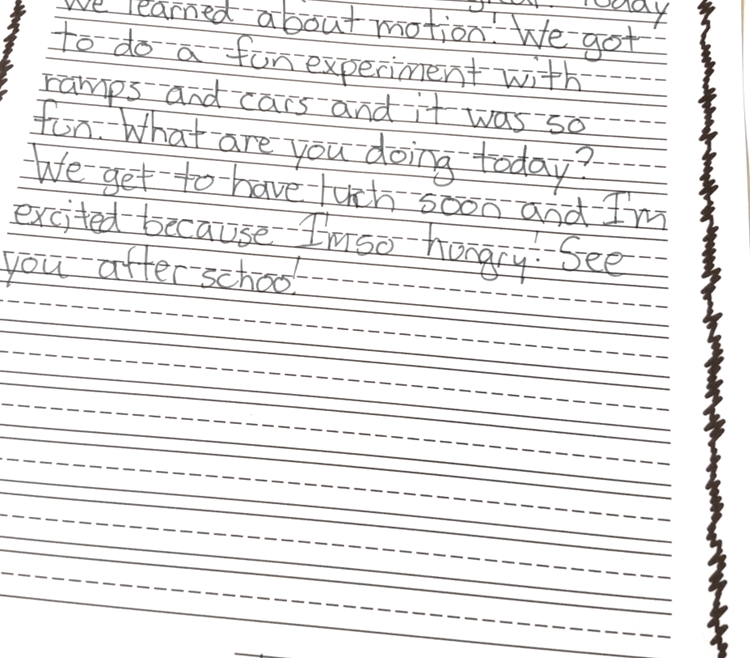 today
We learned about motion! We got
to do a fun experiment with
ramps and cars and it was so
fun. What are you doing today?
We get to have luch soon and I'm
excited because I'm so hongry! See
you after school